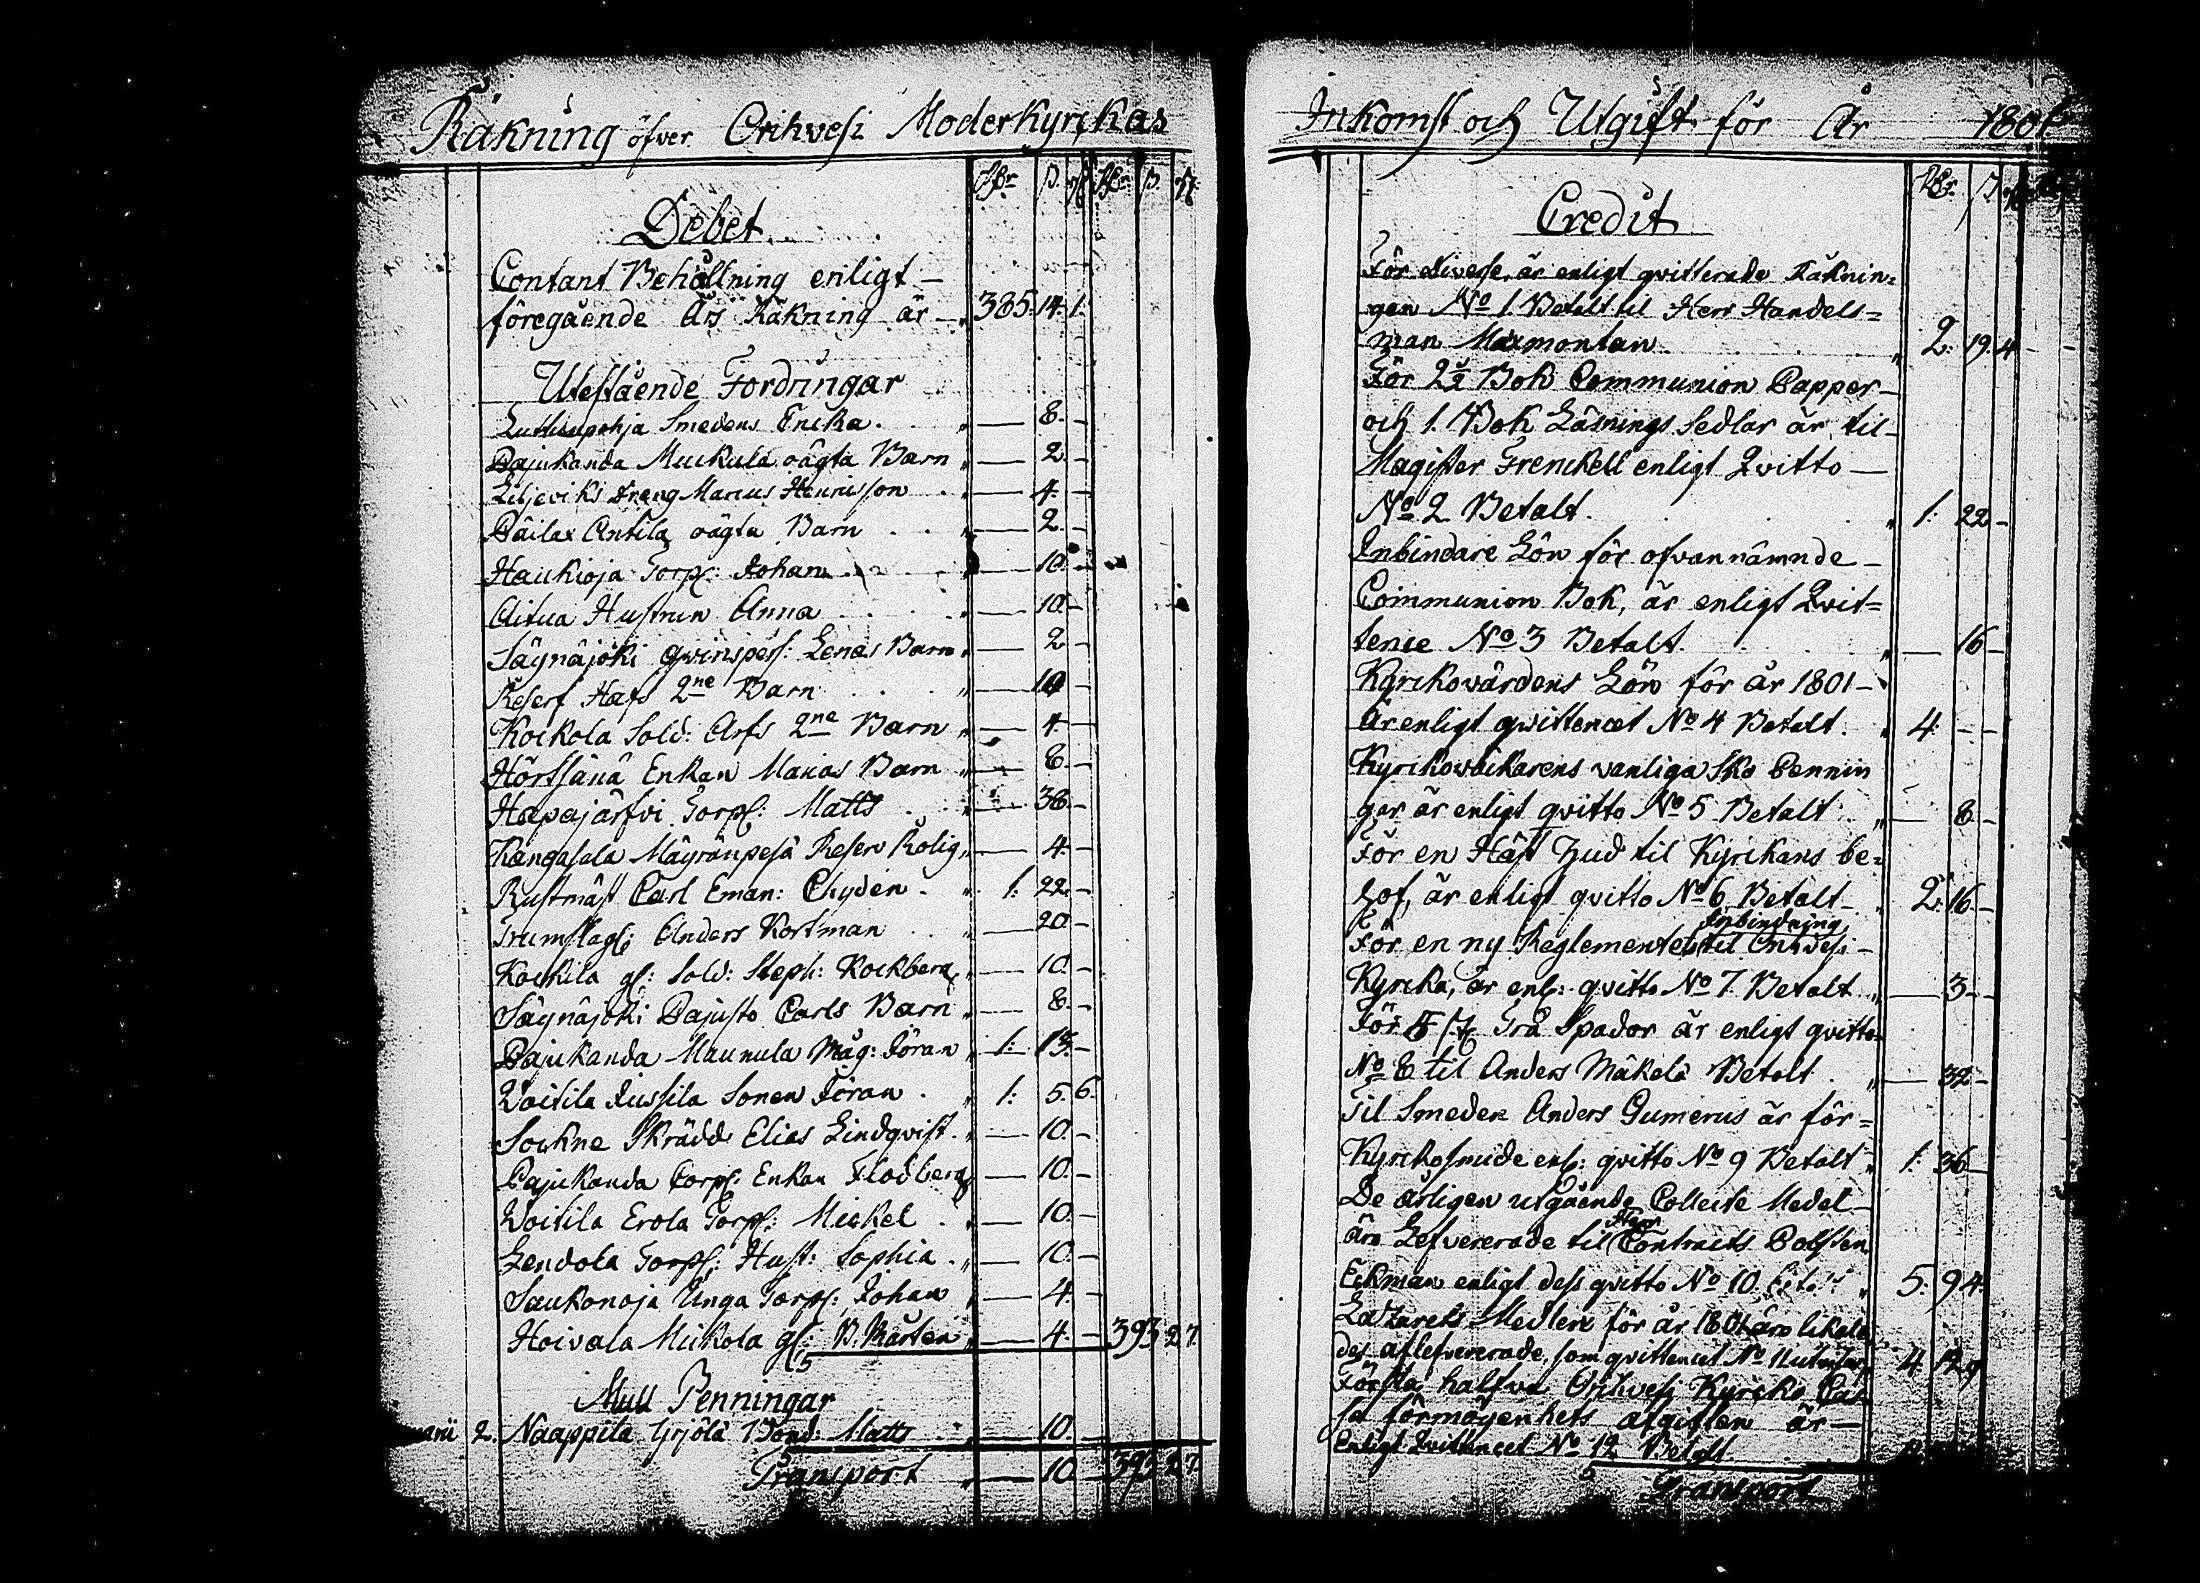 Räkning öfver Orihvesi Moderkyrckas
Debet
Contant Behållning enligt –
föregående Års Räkning är – „ 385. 14. 1.
Utestående Fordringar
Smedens Erica . „ — 8. –
Pajukanda Muckula oägta Barn „ — 2. –
Liljeviks Dreng Marcus Henricsson . „ — 4. –
Päilax Antila oägta Barn . . „ — 2. –
Haukioja Torp: Johan . . „ — 10. –
Aitua Hustrun Anna . . . „ — 10. –
Säynäjoki qvinspers: Lenas Barn „ — 2. –
Reserf Hafs 2ne Barn . . . „ — 10 –
Kockola Sold: Arfs 2ne Barn „ — 4. –
Enkan Marias Barn „ — 8. –
Hapajärfvi Torp: Matts . . „ — 36. –
Kangasala Mäyränpesä Reserv Rolig „ — 4. –
Rustmäst Carl Eman: Chydén . „ 1: 22. –
Trumslag: Anders Kortman . . „ — 20. –
Kockila gl: Sold: Steph: Kockberg „ — 10. –
Säynäjoki Pajusto Carls Barn „ — 8. –
Pajukanda Maunula Måg: Jöran „ 1: 13. –
Voitila Jussila Sonen Jöran . „ 1: 5. 6.
Sockne Skrädd: Elias Lindqvist . „ — 10. –
Pajukanda Corp: Enkan Flodberg „ — 10. –
Voitila Erola Torp: Mickel . „ — 10. –
Lendola Torp: Hust: Sophia . „ — 10. –
Saukonoja Unga Torp: Johan „ — 4. –
Hoivala Mickola gl: B. Mårten „ — 4. – 393 27.
Mull Penningar
2. Naappila Yrjölä Bond: Matts . „ — 10. –
Transport „ — 10 – 393 27.
Inkomst och Utgift för År 1801
Credit
För diverse, är enligt qvitterade Räknin=
gen No 1. Betalt til Herr Handels=
man Marmontan . . . „ 2: 19. 4
För 2½ Bok Communion Papper –
och 1. Bok Läsnings Sedlar är til –
Magister Frenckell enligt Qvitto —
No 2 Betalt . . . „ 1: 22 –
Inbindare Lön för ofvannämnde –
Communion Bok, är enligt Qvit=
tence No 3 Betalt . . . „ — 16 –
Kyrckovärdens Lön för år 1801 –
är enligt qvittencet No 4 Betalt . „ 4. – –
Kyrckoväckarens vanliga Sko Pennin
gar är enligt qvitto No 5 Betalt . „ — 8 –
För en Häst Hud til Kyrckans be=
hof, är enligt qvitto No 6 Betalt – „ 2: 16. –
Inbindning
För en ny Reglementets til Orihvesi –
Kyrcka, är enl: qvitto No 7. Betalt „ — 3 – –
För Trä Spador är enligt qvitto
No 8 til Anders Mäkelä Betalt . „ — 32 –
Til Smeden Anders Gumerus är för=
Kyrckosmide enl: qvitto No 9 Betalt „ 1: 36 –
De årligen utgående Collecte Medel –
Herr
äro Lefvererade til Contracts Prosten
Eckman enligt dess qvitto No 10 „ 5: 9 4.
Lazarets Medlen för år 1801 äro likale
des aflefvererade, som qvittencet No 11 utvisar 4. 12 9
Första halfva Orihvesi Kyrcko Cas
sa förmögenhets afgiften är —
Enligt Qvittencet No 12 Betalt
Transport